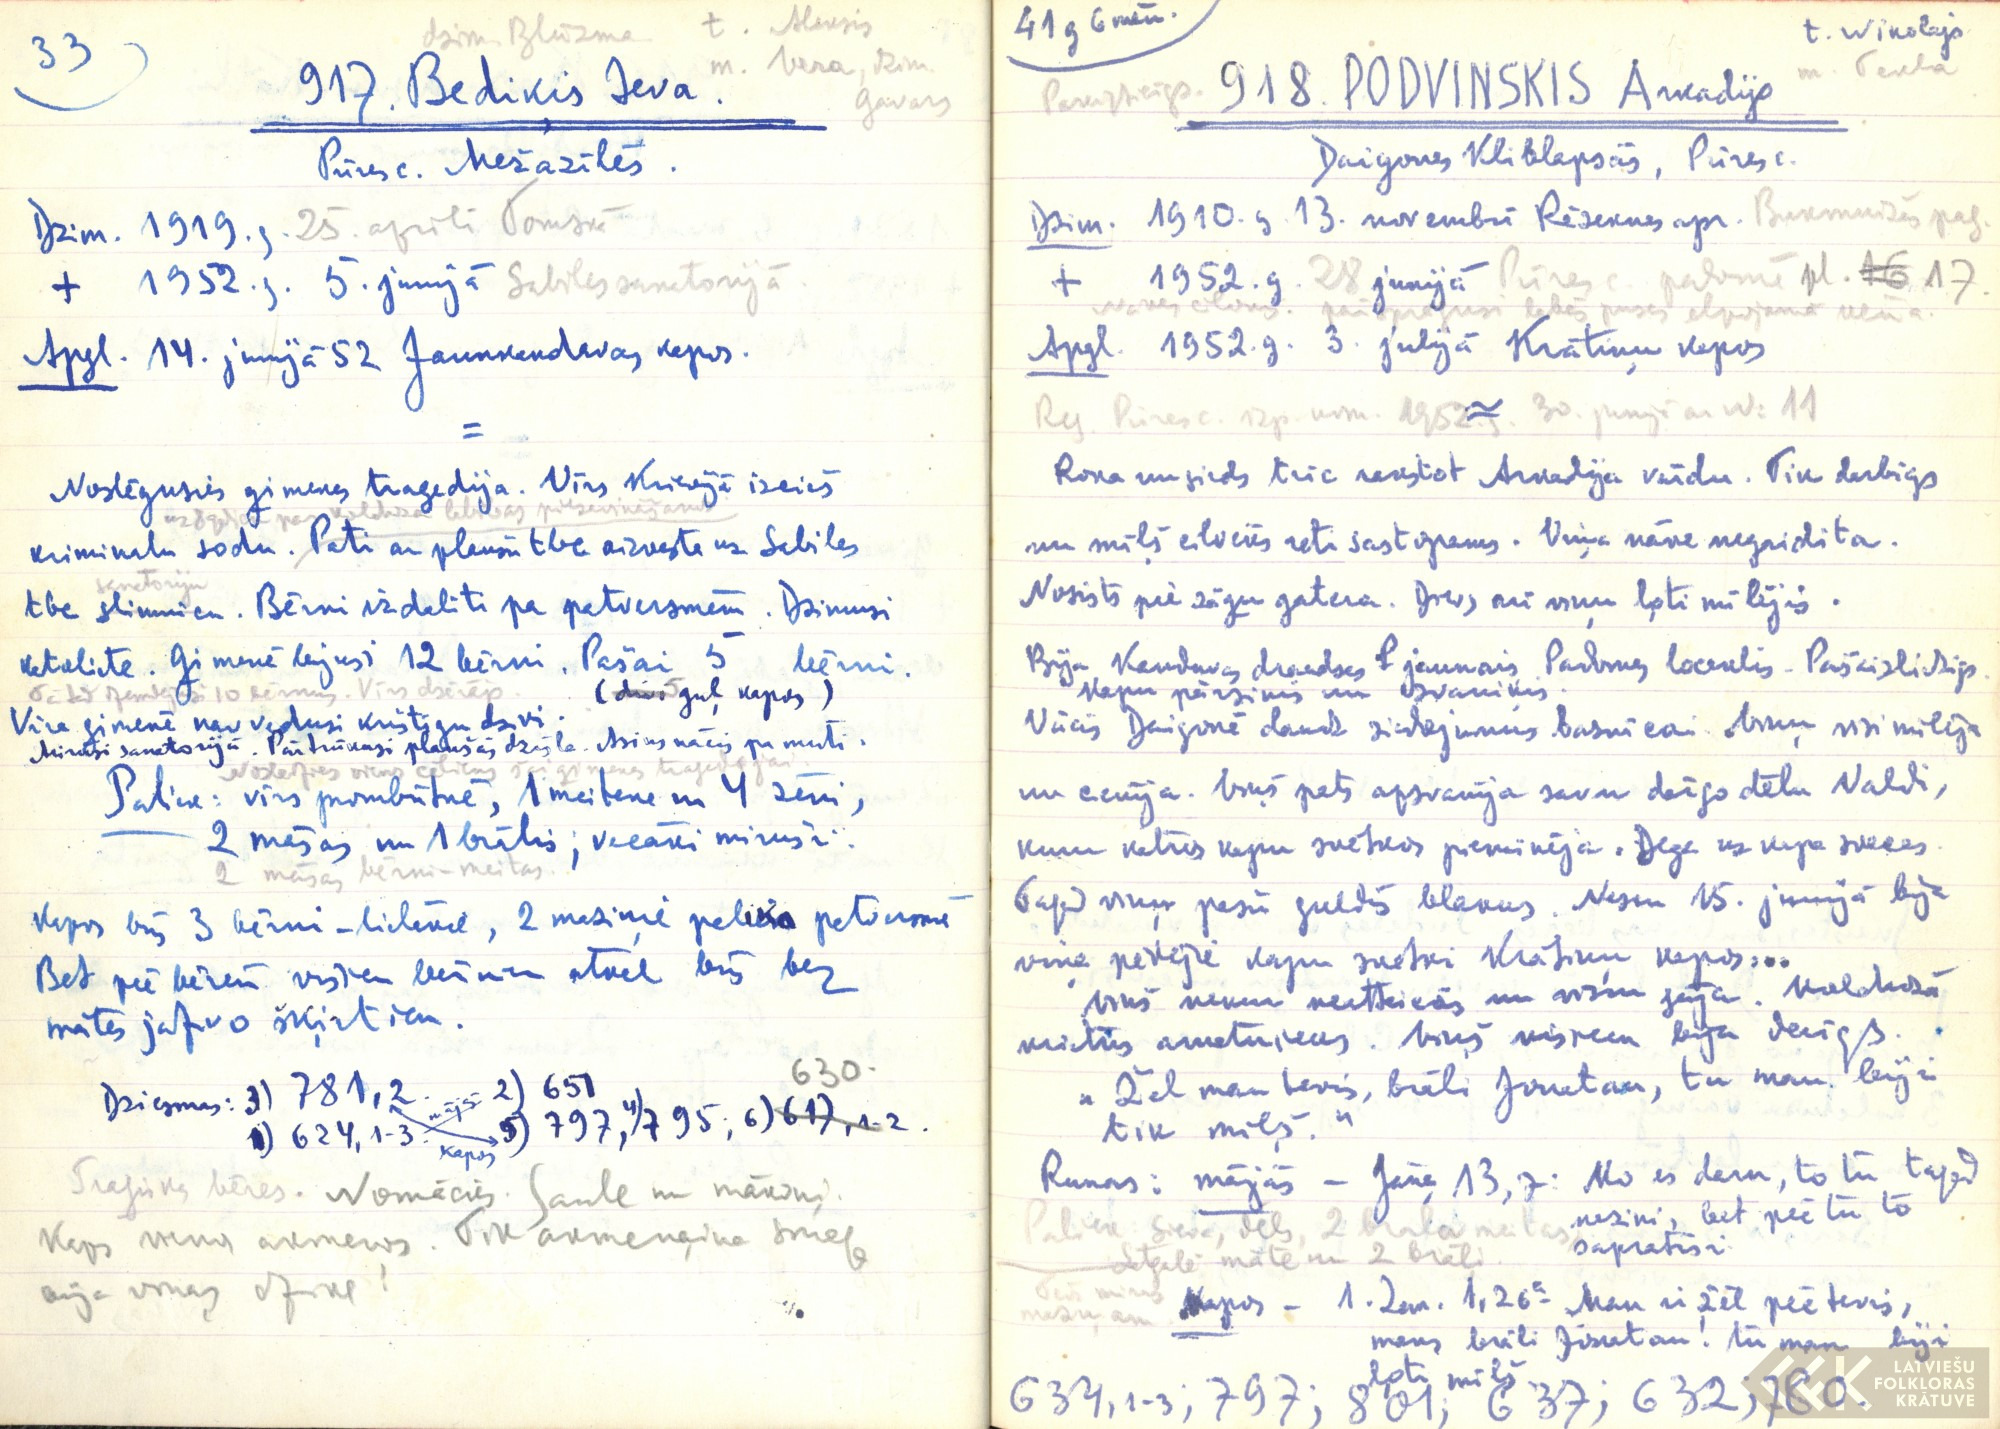 33
dzim. Blūzma t. Aleksis
m. Vera, dzim.
Gavars
917. Bedikis Ieva.
Pūres c. Mežazīlēs.
Dzim. 1919.g. 25. aprīlī Tomskā
+ 1952.g. 5. jūnijā Sabiles sanatorijā.
Apgl. 14. jūnijā 52 Jaunkandavas kapos.
=
Noslēgusies ģimenes tragēdija. Vīrs Krievijā izcieš
par kolhoza labības piesavināšanu
kriminālu sodu. Pati ar plaušu tbc aizvesta uz Sabiles
sanatoriju
tbc slimnīcu. Bērni izdalīti pa patversmēm. Dzimusi
katoliete. Ģimenē bijuši 12 bērni. Pašai 5 bērni.
10 bērnus. Vīrs dzērājs. (divi guļ kapos)
Vīra ģimenē nav vedusi kristīgu dzīvi.
Mirusi sanatorijā. Pārtrūkusi plaušās dzīsla. Asins nācis pa muti.
Noslēdzies viens cēliens šai ģimenes traģēdijai.
Paliek: vīrs prombūtnē, 1 meitene un 4 zēni,
2 māsas un 1 brālis; vecāki miruši.
2 māsas bērni-meitas.
Kapos būs 3 bērni-lielākie, 2 mazinie paliks patversmē
Bet pēc bērēm visiem bērniem atkal būs bez
mātes jādzīvo šķirtiem.
630.
Dziesmas: 3) 781,2. mājās 2) 651
1) 624, 1-3. kapos 5) 797, 4) 795; 6) 617, 1-2.
Traģiskas bēres. Nomācies. Saule un mākoņi.
Kaps vienos akmeņos. Tik akmeņaina smaga
bija viņas dzīve!
41 g 6 mēn.
t. Nikolajs
m. Tekla
Pareizticīgs. 918. PODVINSKIS Arkādijs
Daigones Kliblapsās, Pūres c.
Dzim. 1910.g. 13. novembrī Rēzeknes apr. Bukmuižas pag.
+ 1952.g. 28 jūnijā Pūres c. padomē pl. 16 17.
Nāves cēlons. labās puses elpojamā vēna.
Apgl. 1952.g. 3. jūlijā Krātiņu kapos
Reģ. Pūres c. izp. kom. 1952.g. 30. jūnijā ar Nr 11
≈
Roka un sirds trīc rakstot Arkādija vārdu. Tik darbīgs
un mīļš cilvēks reti sastopams. Viņa nāve negaidīta.
Nosists pie zāģu gatera. Dievs arī viņu ļoti mīlējis.
Bija Kandavas draudzes jaunais Padomes loceklis. Pašaizliedzīgs.
Kapu pārzinis un zvaniķis.
Vācis Daigonē daudz ziedojumus baznīcai. Viņu visi mīlēja
un cienīja. Viņš pats apzvanīja savu dārgo dēlu Valdi,
kuru katros kapu svētkos pieminēja. Dega uz kapa sveces.
Tagad viņu pašu guldīs blakus. Nesen 15. jūnijā bija
viņa pēdējie kapu svētki Krātiņu kapos...
Viņš nekur neatteicās un visur gāja. Kolchozā
kristīs amatnieks. Viņš visiem bija derīgs.
"Žēl man tevis, brāli Jonatan, tu man biji
tik mīļš."
Runas: mājās - Jāņa 13,7: Ko es daru, to tu tagad
nezini, bet pēc tu to
sapratīsi.
Paliek: sieva, dēls, 2 brāļa meitas,
Latgalē māte un 2 brāļi.
Tēvs miris
Kapos - 2.Sam. 1,26 Man ir žēl pēc tevis,
mans brāli Jonatan! tu man biji
ļoti mīļš.
634, 1-3; 797; 801; 637; 632; 780.
LATVIEŠU
FOLKLORAS
KRĀTUVE